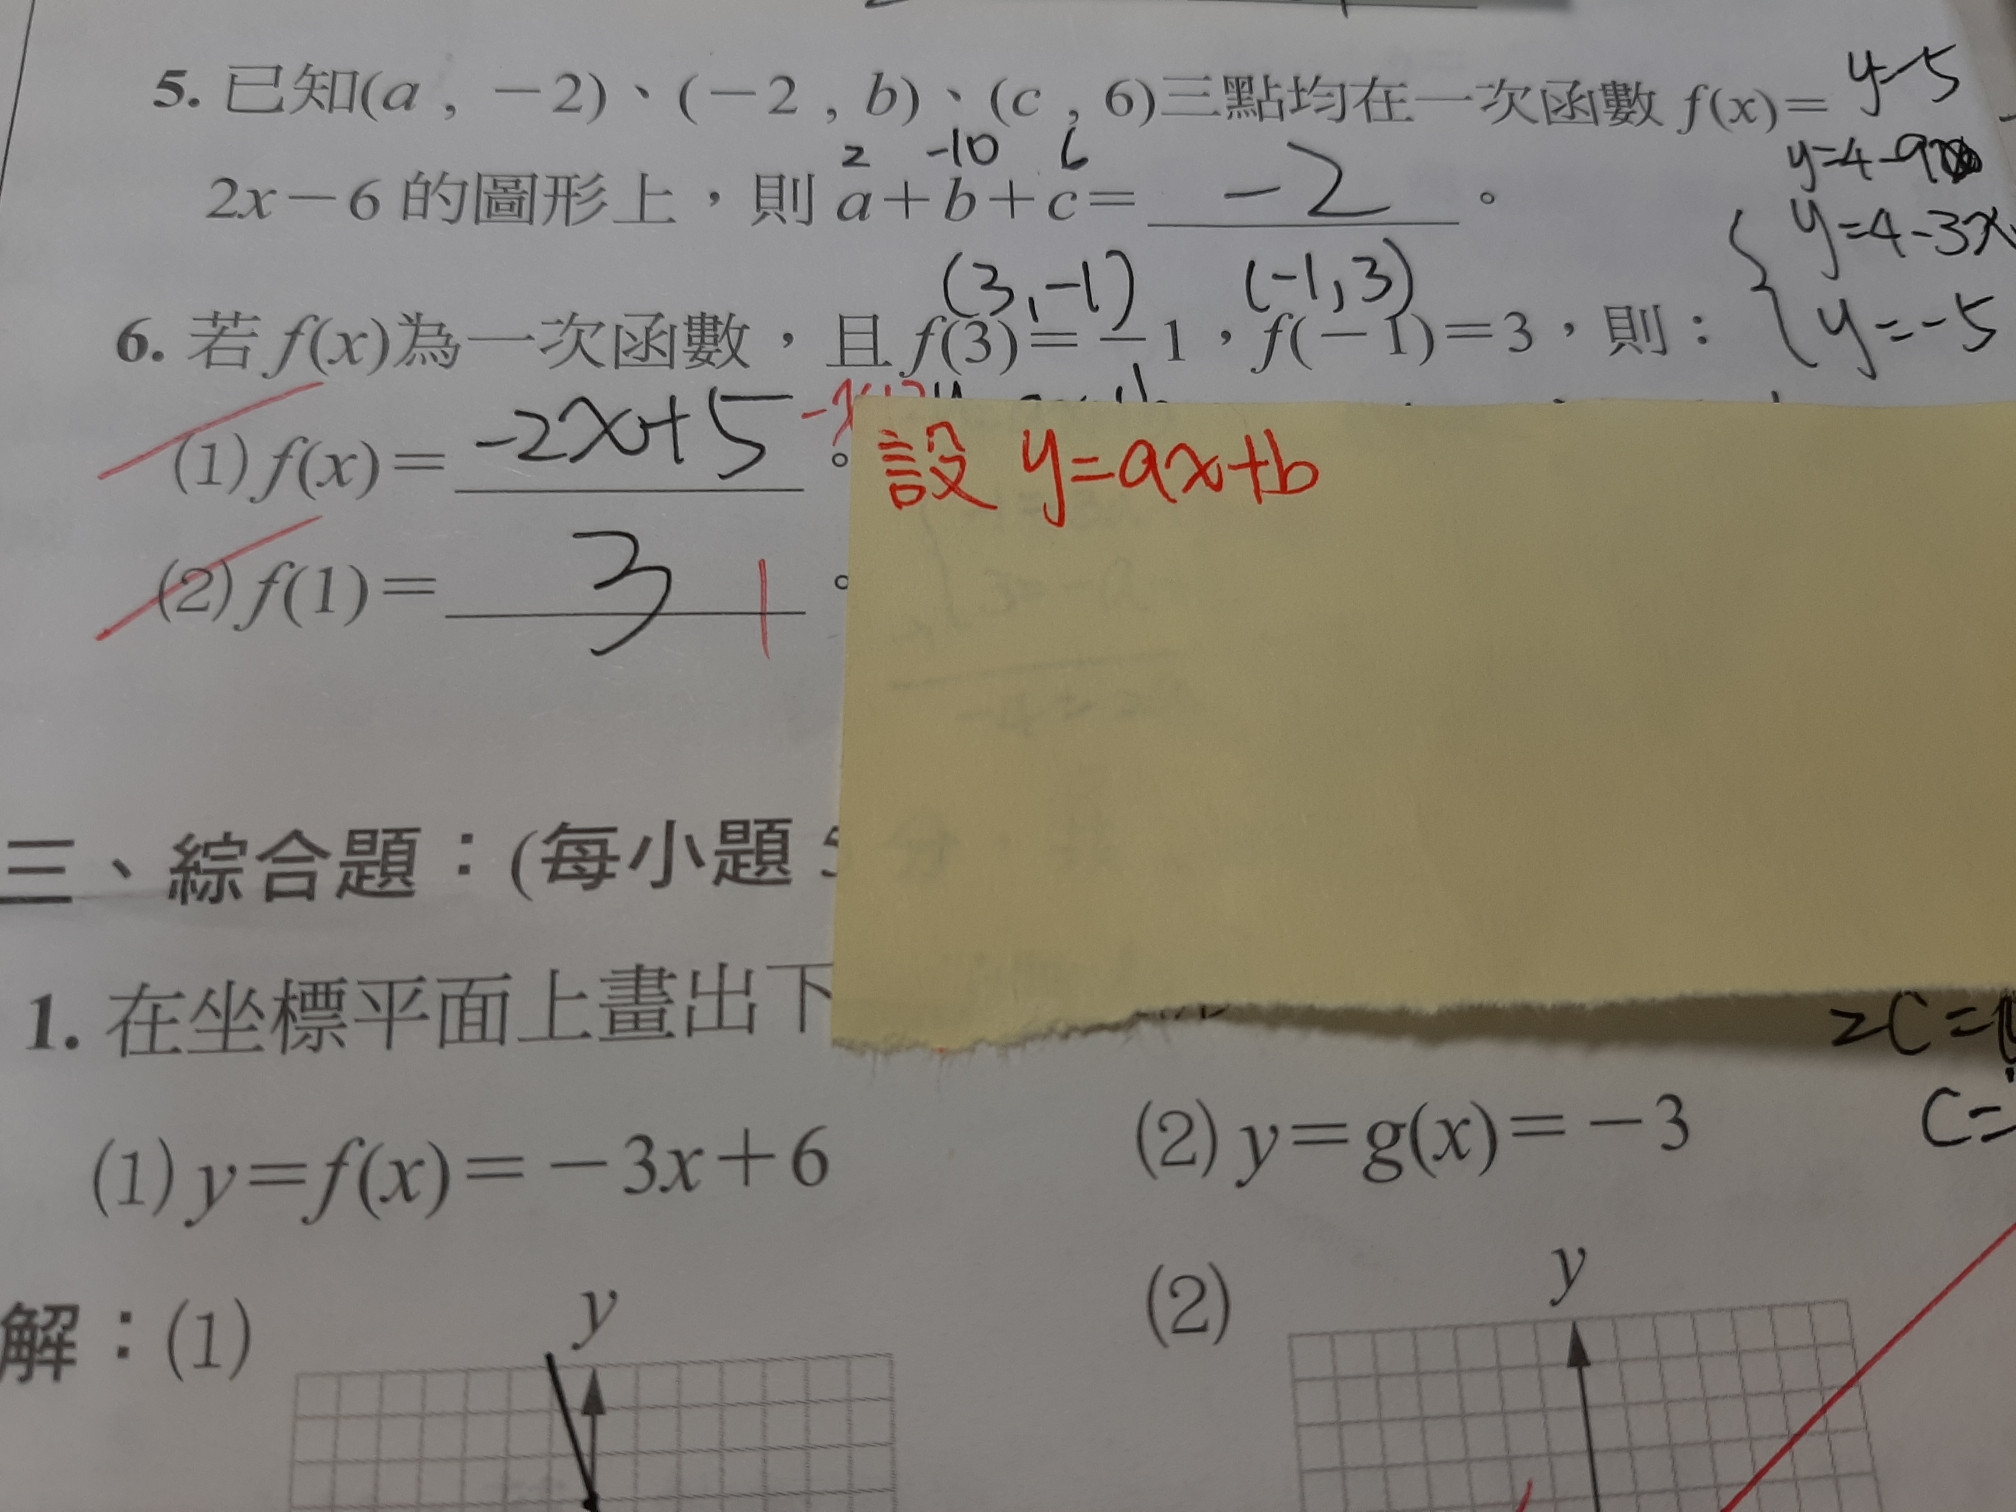 5. 已知(a , －2)、(－2 , b)、(c , 6)三點均在一次函數 f(x)＝
y=-5
2 -10 6
y=4-9
2x－6 的圖形上，則 a＋b＋c＝ -2 。
y=4-3x
(3,-1) (-1,3)
6. 若 f(x)為一次函數，且 f(3)＝－1，f(－1)＝3，則：
y=-5
(1) f(x)＝ -2x+5 。
設 y=ax+b
(2) f(1)＝ 3 1 。
三、綜合題：(每小題
1. 在坐標平面上畫出下
2C=
C=
(1) y＝f(x)＝－3x＋6
(2) y＝g(x)＝－3
解：(1)
y
(2)
y